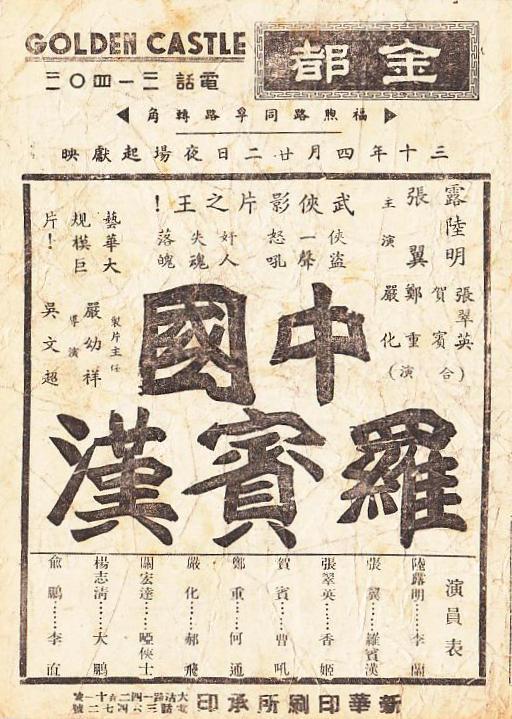 GOLDEN CASTLE
金都
電話 三一四〇二
福煦路同孚路轉角
三十年四月廿二日夜場起獻映
武俠影片之王！
俠盜一聲怒吼
奸人失魂落魄
藝華大規模巨片！
主演
張翼
陸露明
嚴化
鄭重
賀賓
張翠英
（合演）
製片主任
嚴幼祥
導演
吳文超
中國
羅賓漢
演員表
陸露明……李蘭
張翼……羅賓漢
張翠英……香姬
賀賓……曹吼
鄭重……何通
嚴化……郝飛
關宏達……啞俠士
楊志清……大鵬
俞鵬……李直
新華印刷所承印